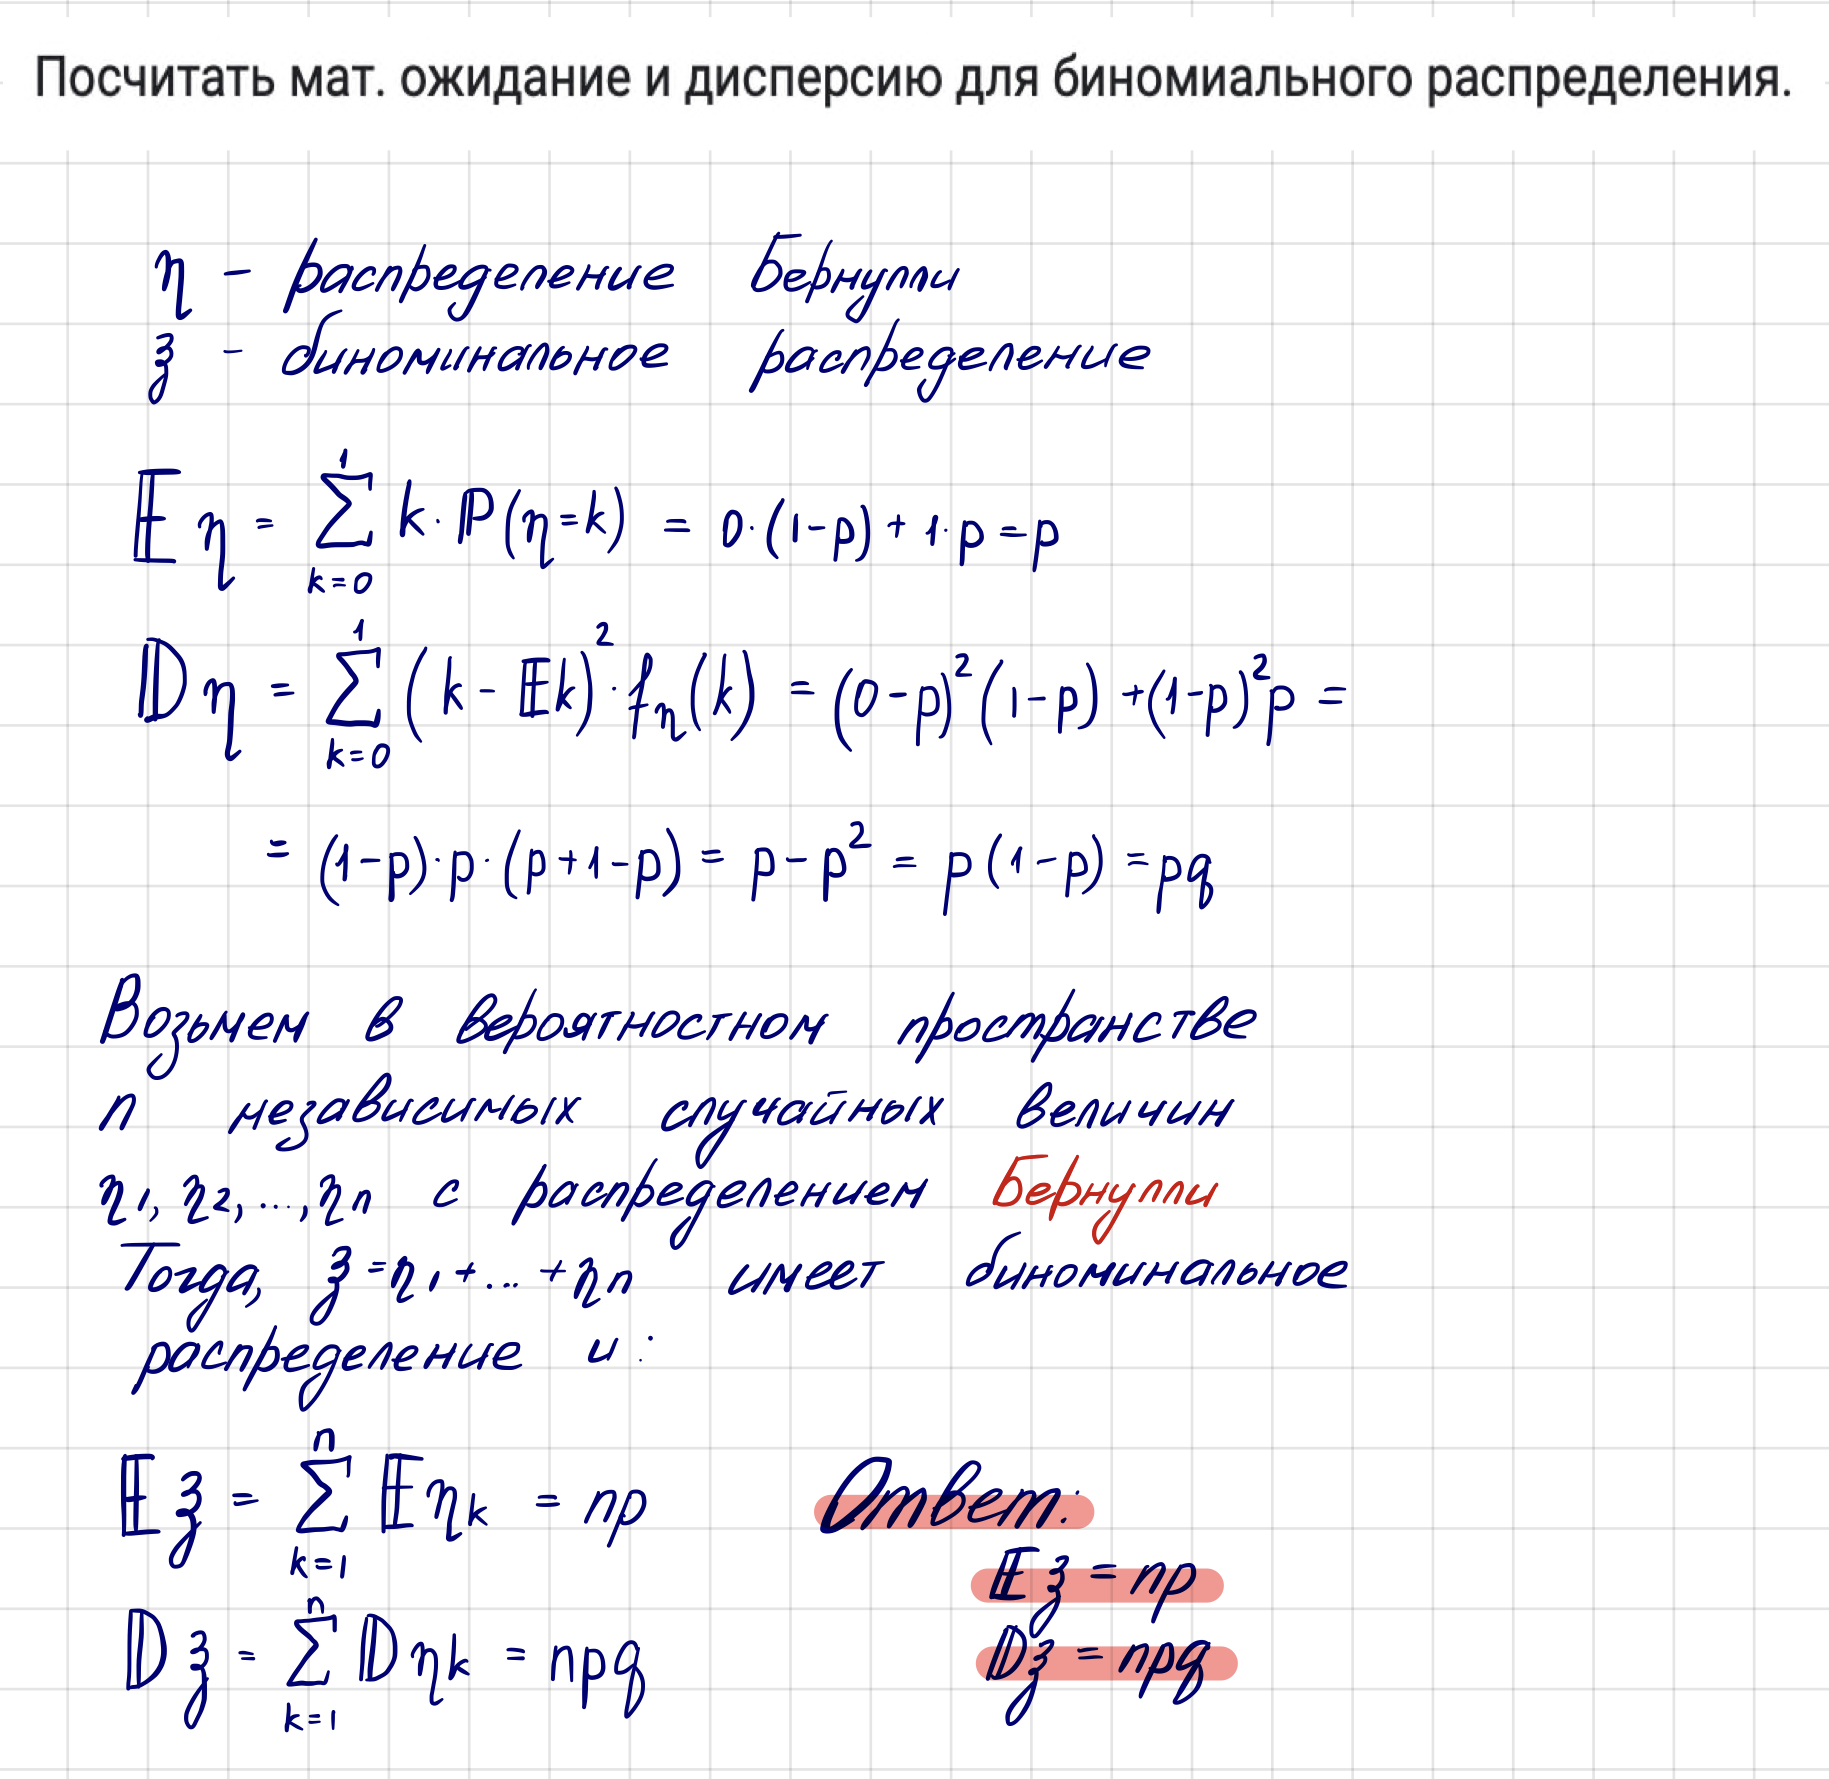 Посчитать мат. ожидание и дисперсию для биномиального распределения.
η - распределение Бернулли
ξ - биноминальное распределение
𝔼η = ∑_{k=0}^{1} k·ℙ(η=k) = 0·(1-p) + 1·p = p
𝔻η = ∑_{k=0}^{1} (k - 𝔼k)²·f_η(k) = (0-p)²(1-p) + (1-p)²p =
= (1-p)·p·(p+1-p) = p - p² = p(1-p) = pq
Возьмем в вероятностном пространстве
n независимых случайных величин
η₁, η₂, ..., ηₙ с распределением Бернулли
Тогда, ξ = η₁ + ... + ηₙ имеет биноминальное
распределение и:
𝔼ξ = ∑_{k=1}^{n} 𝔼ηₖ = np
𝔻ξ = ∑_{k=1}^{n} 𝔻ηₖ = npq
Ответ:
𝔼ξ = np
𝔻ξ = npq